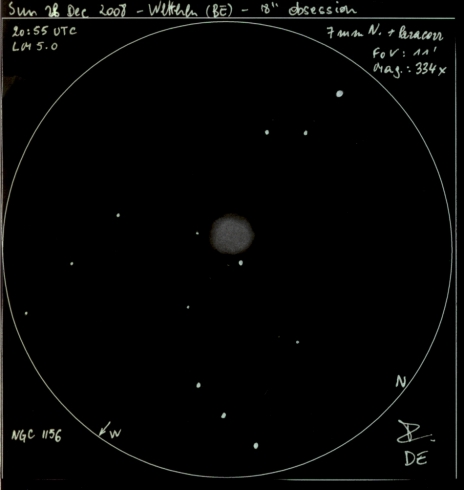 Sun 28 Dec 2008 - Wetteren (BE) - 18" obsession
20:55 UTC
LM 5.0
7 mm N. + Paracorr
FoV: 11'
Mag.: 334x
N
NGC 1156
W
DE